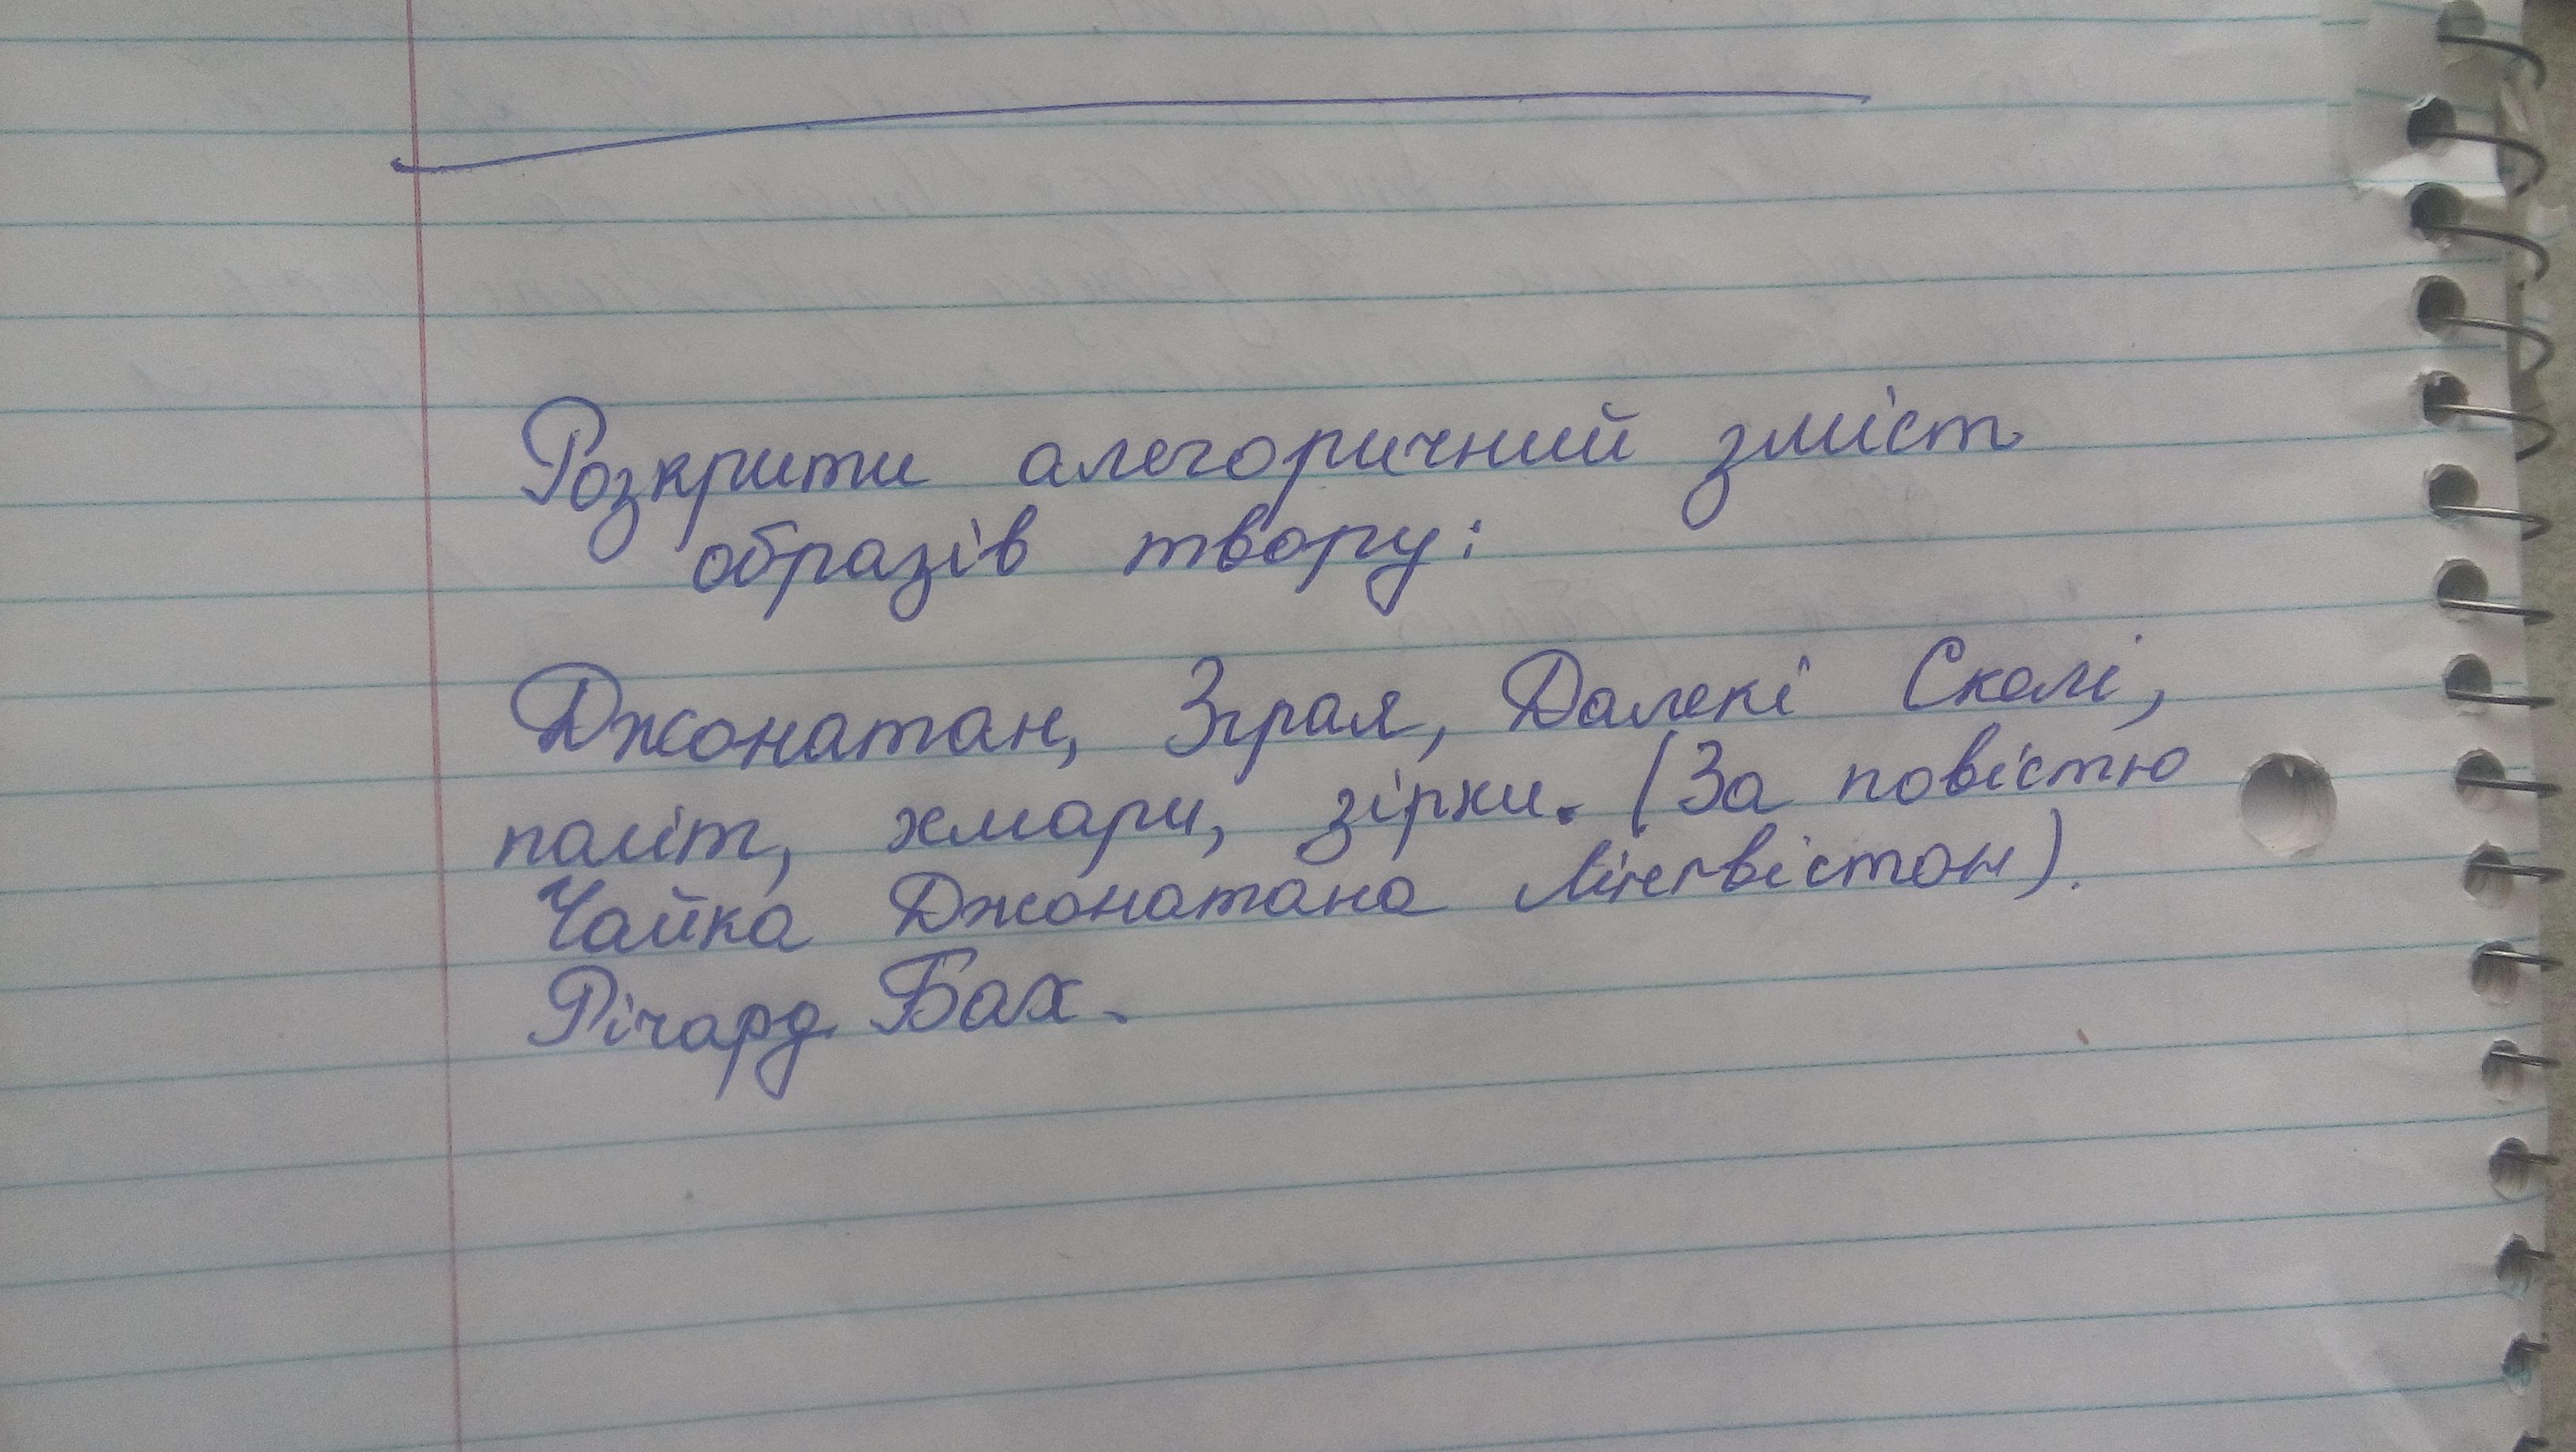 Розкрити алегоричний зміст
образів твору:
Джонатан, Зграя, Далекі Скелі,
політ, хмари, зірки. (За повістю
Чайка Джонатана Лінгвістон).
Річард Бах.